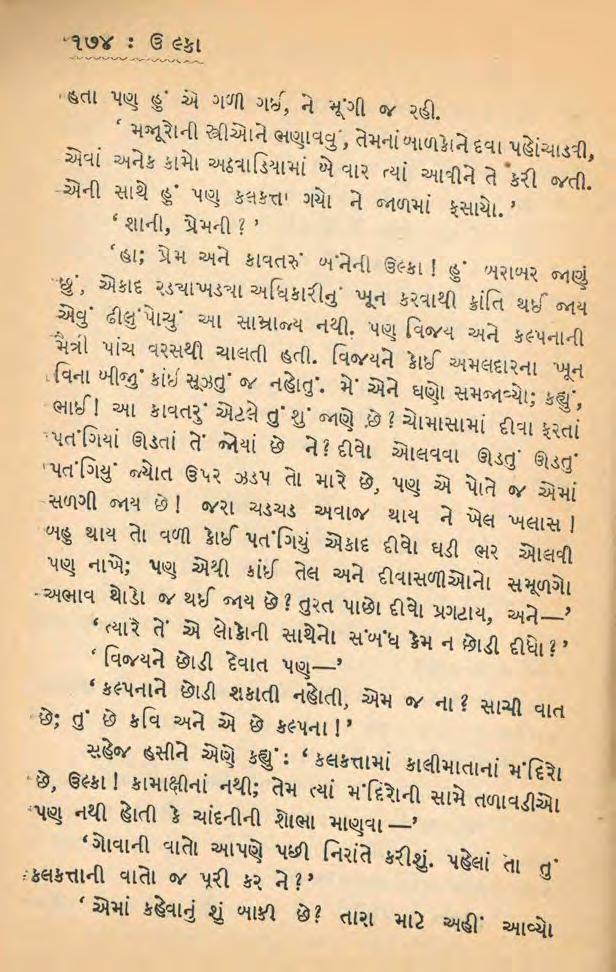 ૧૭૪ : ઉલ્કા
હતા પણ હું એ ગળી ગઈ, ને મૂંગી જ રહી.
‘ મજૂરોની સ્ત્રીઓને ભણાવવું, તેમનાં બાળકોને દવા પહોંચાડવી,
એવાં અનેક કામો અઠવાડિયામાં બે વાર ત્યાં આવીને તે કરી જતી.
એની સાથે હું પણ કલકત્તા ગયો ને જાળમાં ફસાયો.’
‘ શાની, પ્રેમની ? ’
‘હા; પ્રેમ અને કાવતરું બંનેની ઉલ્કા ! હું બરાબર જાણું
છું, એકાદ રડ્યાખડ્યા અધિકારીનું ખૂન કરવાથી ક્રાંતિ થઈ જાય
એવું ઢીલુંપોચું આ સામ્રાજ્ય નથી. પણ વિજય અને કલ્પનાની
મૈત્રી પાંચ વરસથી ચાલતી હતી. વિજયને કોઈ અમલદારના ખૂન
વિના બીજું કાંઈ સૂઝતું જ નહોતું. મેં એને ઘણો સમજાવ્યો; કહ્યું,
ભાઈ! આ કાવતરું એટલે તું શું જાણે છે ? ચોમાસામાં દીવા ફરતાં
પતંગિયાં ઊડતાં તેં જોયાં છે ને? દીવો ઓલવવા ઊડતું ઊડતું
પતંગિયું જ્યોત ઉપર ઝડપ તો મારે છે, પણ એ પોતે જ એમાં
સળગી જાય છે ! જરા ચડચડ અવાજ થાય ને ખેલ ખલાસ !
બહુ થાય તો વળી કોઈ પતંગિયું એકાદ દીવો ઘડી ભર ઓલવી
પણ નાખે; પણ એથી કાંઈ તેલ અને દીવાસળીઓનો સમૂળગો
અભાવ થોડો જ થઈ જાય છે? તુરત પાછો દીવો પ્રગટાય, અને—’
‘ત્યારે તેં એ લોકોની સાથેનો સંબંધ કેમ ન છોડી દીધો?’
‘ વિજયને છોડી દેવાત પણ—’
‘કલ્પનાને છોડી શકાતી નહોતી, એમ જ ના? સાચી વાત
છે; તું છે કવિ અને એ છે કલ્પના !’
સહેજ હસીને એણે કહ્યું : ‘ કલકત્તામાં કાલીમાતાનાં મંદિરો
છે, ઉલ્કા ! કામાક્ષીનાં નથી; તેમ ત્યાં મંદિરોની સામે તળાવડીઓ
પણ નથી હોતી કે ચાંદનીની શોભા માણવા —’
‘ગોવાની વાતો આપણે પછી નિરાંતે કરીશું. પહેલાં તા તું
કલકત્તાની વાતો જ પૂરી કર ને?’
‘એમાં કહેવાનું શું બાકી છે? તારા માટે અહીં આવ્યો